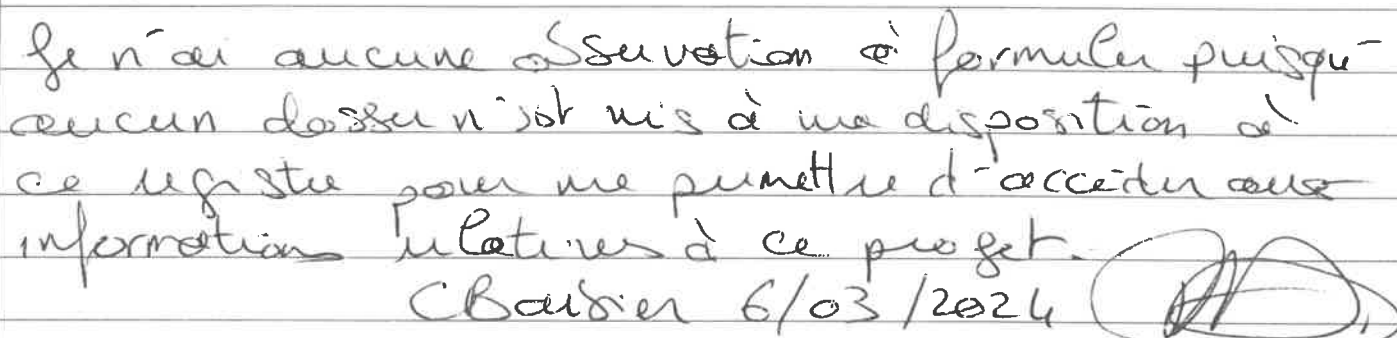 Je n'ai aucune observation à formuler puisqu'
aucun dossier n'est mis à ma disposition à
ce registre pour me permettre d'accéder aux
informations relatives à ce projet.
6/03/2024